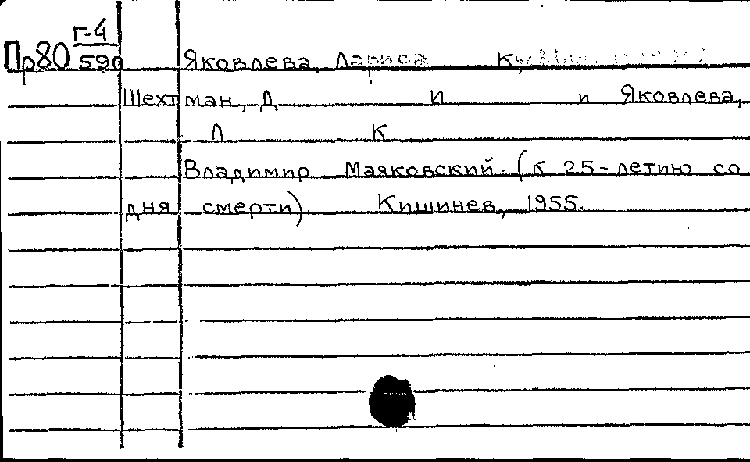 Г-4
Пр80 590
Яковлева, Лариса
Шехтман, Д И и Яковлева,
Л К
Владимир Маяковский. (к 25-летию со
дня смерти) Кишинев, 1955.